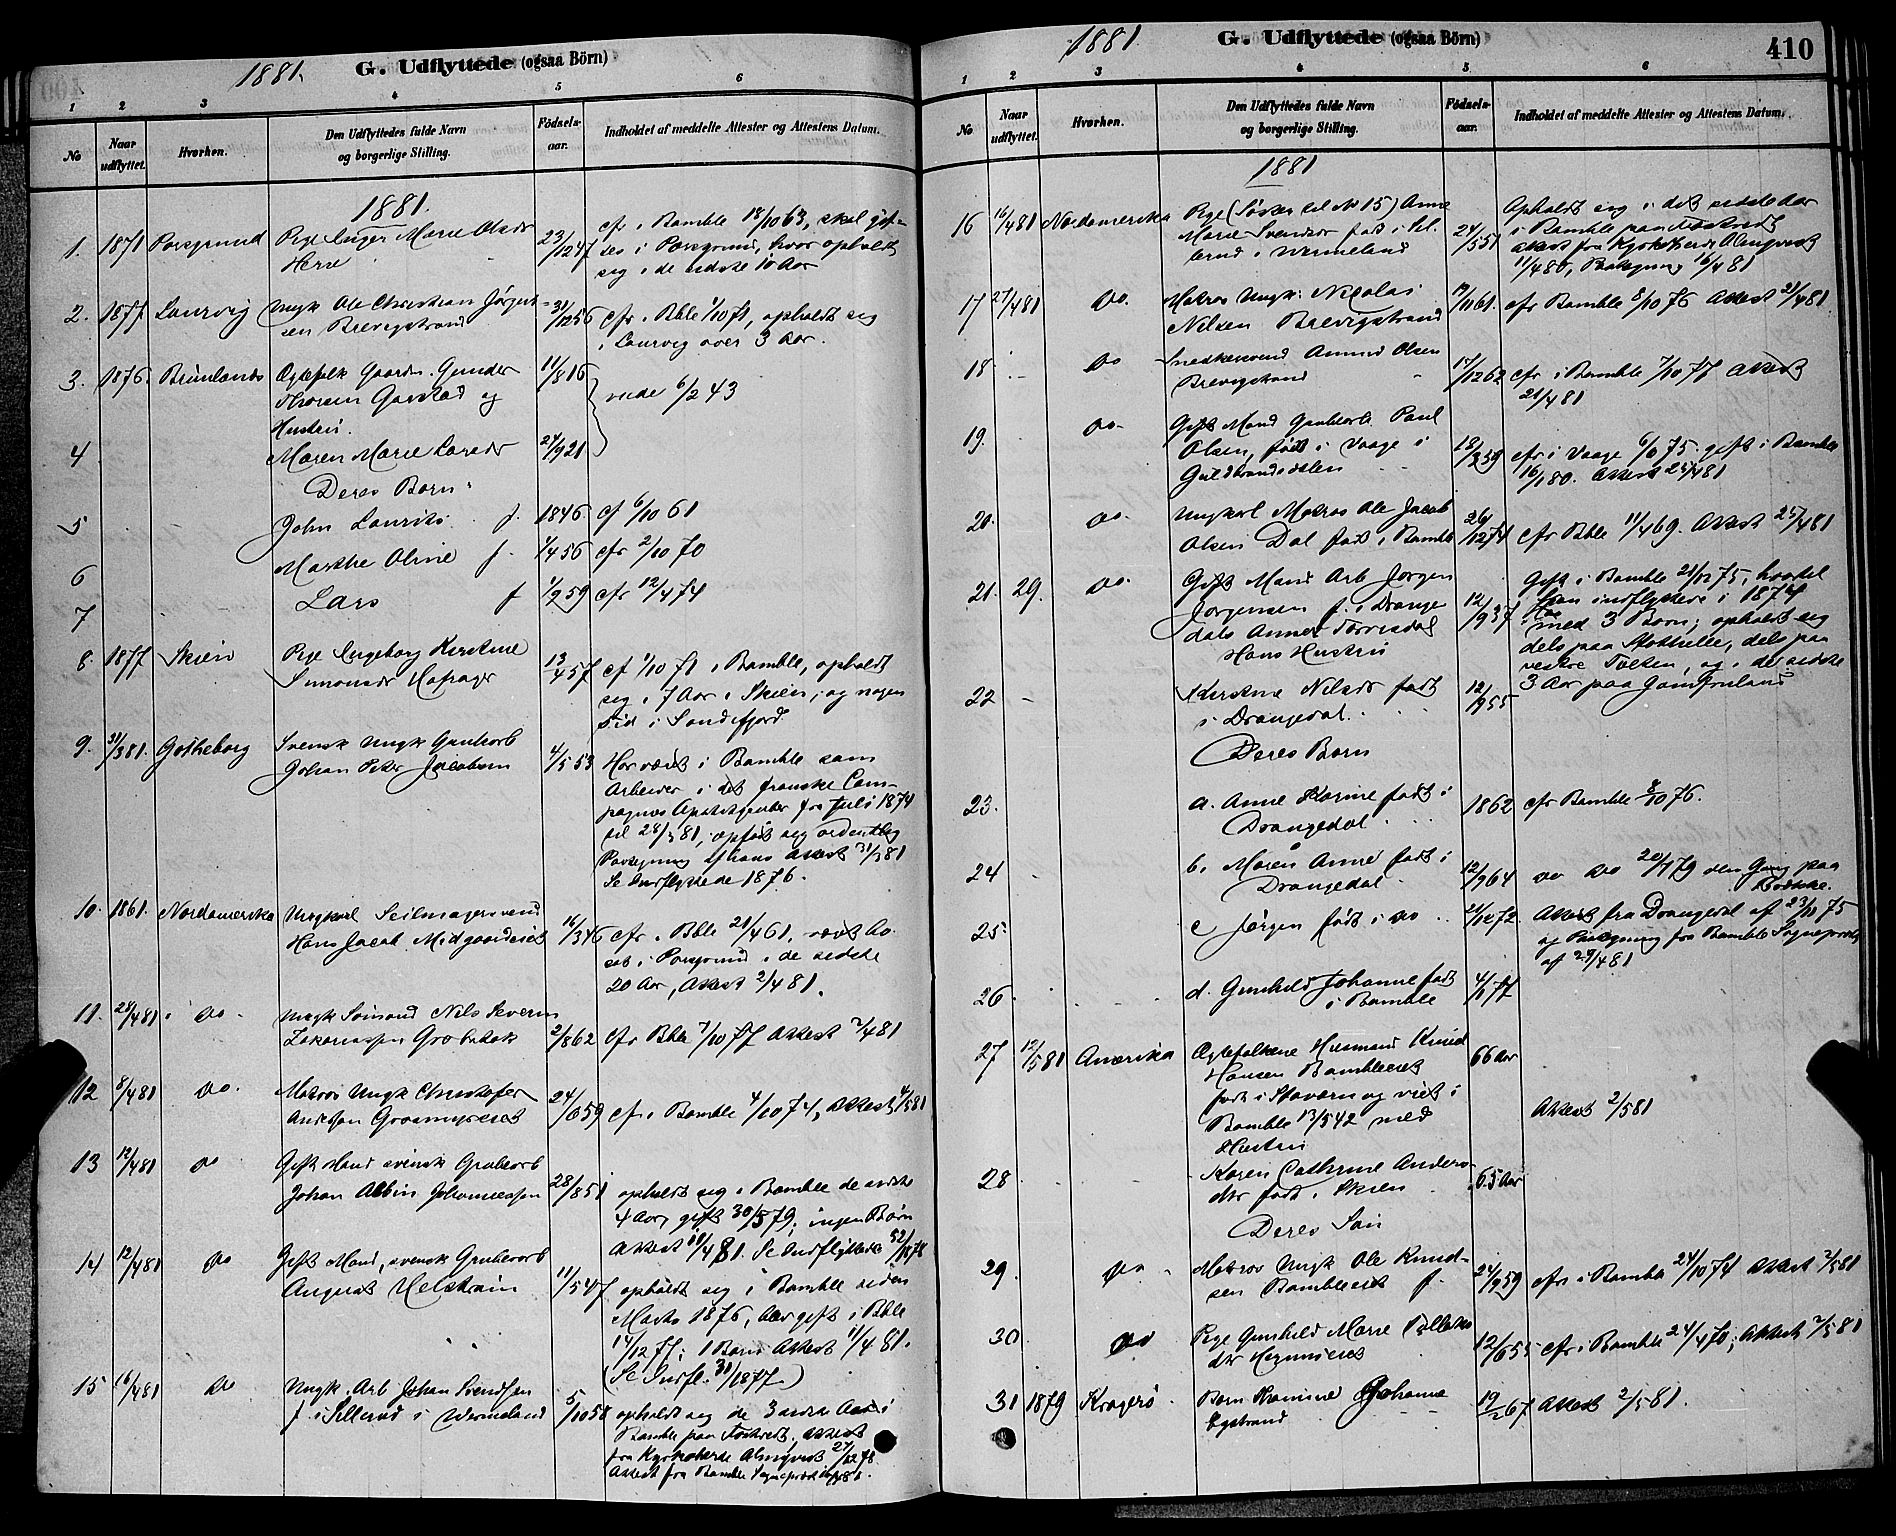 1881.
G. Udflyttede (ogsaa Börn)
1 2 3 4 5 6
No
Naar udflyttet.
Hvorhen.
Den Udflyttedes fulde Navn
og borgerlige Stilling.
Fødsels-
aar.
Indholdet af meddelte Attester og Attestens Datum.
1881.
1. 1871 Porsgrund Pige Inger Marie Olsdr 23/12 47 cfr i Bamble 18/10 63, skal gif-
Herre tes i Porsgrund, hvor opholdt
seg i de sidste 10 Aar
2. 1877 Laurvig Ungk Ole Christian Jörgen- 31/12 56 cfr. i Bble 1/10 71, opholdt sig
sen Brevigstrand i Laurvig over 3 Aar.
3. 1876. Brunlands Egtefolk Gaardm. Gunder 11/8 16
Thorsen Garstad og viede 6/2 43
Hustru.
4 Maren Marie Larsdr 24/9 21
Deres Børn:
5 John Laurits f. 1846. cf 6/10 61
6 Marthe Oline f. 1/4 56 cfr 2/10 70
7 Lars f 1/9 59 cfr 12/4 74
8. 1877 Skien Pige Ingeborg Kirstine 13/4 57 cf 1/10 71 i Bamble, opholdt
Simonsdr Hafsager seg i 7 Aar i Skien, og nogen
Tid i Sandefjord.
9. 31/3 81. Gøtheborg Svensk Ungk Grubearb
Johan Peter Jacobsen 4/5 53 Har været i Bamble som
Arbeider i det franske Com-
pagnies Apatitgruber fra Juli 1874
til 28/3 81, opført seg ordentlig
Paategning af hans Attest 31/3 81
Se Indflyttede 1876.
10. 1861. Nordamerika Ungkarl Seilmagersvend
Hans Jacob Midgaardeiet 16/3 46 cfr. i Bble 21/4 61, vært bo-
sat i Porsgrund i de sidste
20 Aar, Attest 2/4 81.
11. 28/4 81 i do. Ungk Sömand Nils Severin
Zakariassen Grobstok 2/8 62 cfr Bble 7/10 77 Attest 7/4 81
12 8/4 81 do. Matros Ungk Christofer 24/6 59 cfr i Bamble 4/10 74, Attest 4/5 81
13 12/4 81 do Gift Mand svensk Grubearb
Johan Albin Johannessen 28/8 51 opholdt seg i Bamble de sidste
4 Aar, gift 30/5 79; ingen Børn
Attest 11/4 81. Se Indflyttede
14 12/4 81 do Gift Mand, svensk Grubearb
August Helström 11/5 47 opholdt seg i Bamble siden
Marts 1876, blev gift i Bble
14/12 77; 1 Barn Attest 11/4 81.
(Se Indfl. 31/1877.)
15 16/4 81 do Ungk. Arb Johan Svendsen
f. i Sillerud i Wermeland 5/10 58 opholdt seg de 3 sidste Aar i
Bamble paa Fosstvedt, Attest
fra Kyrkoherde Almqvist 27/12 78
Attest fra Bamble Sogneprest
1881
G. Udflyttede (ogsaa Börn)
410
1 2 3 4 5 6
No
Naar
udflyttet.
Hvorhen.
Den Udflyttedes fulde Navn
og borgerlige Stilling.
Fødsels-
aar.
Indholdet af meddelte Attester og Attestens Datum.
1881
16 16/4 81 Nordamerika Pige (Søster til No 15) Anne Opholdt seg i det sidste Aar
Marie Svendsdr født i Sil- 24/5 51 i Bamble paa Fosstvedt
lerud i Wermeland attest fra Kyrkoherde Almqvist
11/4 80, Paategning 16/4 81
17 27/4 81 do. Matros Ungk: Nicolai
Nilsen Brevigstrand 19/11 61. cfr Bamble 8/10 76 Attest 21/4 81
18. do Snedkersvend Anund Olsen
Brevigstrand 17/12 62 cfr i Bamble 7/10 77 Attest
21/4 81
19. do. Gift Mand Grubearb. Paul
Olsen, født i Vaage i 18/3 59 cfr i Vaage 6/6 75. gift i Bamble
Guldbrandsdalen 16/1 80. Attest 25/4 81
20. do. Ungkarl Matros Ole Jacob
Olsen Dal født i Bamble cfr Bble 11/4 69. Attest 25/4 81
21. 29. do. Gift Mand Arb Jørgen Gift i Bamble 21/12 75, hvortil
Jörgensen f. i Drange- 12/9 37 han indflyttede i 1874
dals Annex Tørrisdal med 3 Børn; opholdt seg
Hans Hustru dels paa Stathelle, dels paa
vestre Tolsen, og i de sidste
22 Kirstine Nilsdr født 12/9 55 3 Aar paa Jomfruland
i Drangedal.
Deres Børn
23. a. Anne Karine født i 1862 cfr Bamble 8/10 76.
Drangedal
24 b. Maren Anne født i 12/9 64 do do 20/4 79 den Gang paa
Drangedal
25 c Jörgen født i do 2/10 72. Attest fra Drangedal af 23/11 75
og Paategning fra Bamble Sogneprest
af 29/4 81
26 d. Gunhild Johanne født 4/1 77
i Bamble
27 12/5 81 Amerika Egtefolkene Husmand Knud 66 Aar
Hansen Bambleeiet
født i Stavern og viet i
Bamble 13/5 42 med Attest 2/5 81
Hustru
28 Karen Cathrine Anders- 65 Aar
dtr født i Skien
Deres Søn
29. do Matros Ungk Ole Knud- 24/9 59 cfr i Bamble 24/10 74 Attest 2/5 81
sen Bambleeiet f.
30 do Pige Gunhild Marie 12/6 55 cfr i Bamble 24/4 70; Attest 2/5 81
31 1879 Kragerø Barn Johanne 19/2 67 Attest 2/5 81.